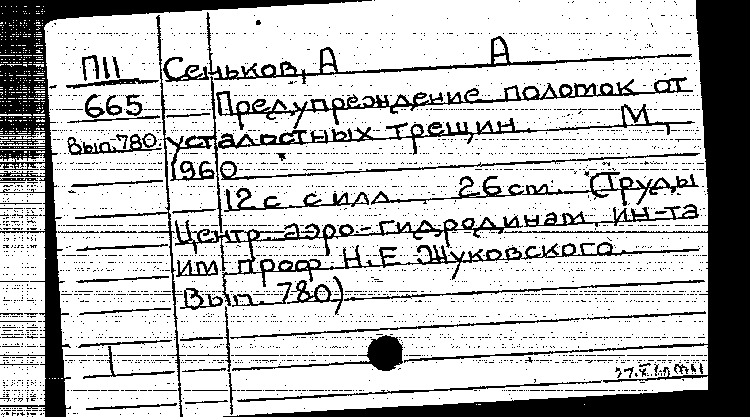 П11 Сеньков, А А
665 Предупреждение полоток от
Вып.780. усталостных трещин. М,
1960
12 с. с илл. 26 см. (Труды
Центр. аэро-гидродинам. ин-та
им. проф. Н.Е. Жуковского.
Вып. 780).